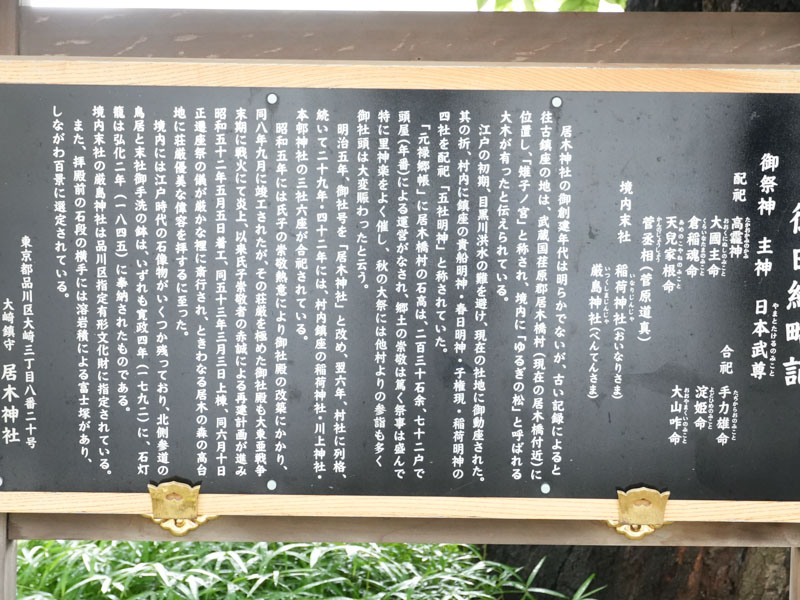 御由緒略記
御祭神 主神 日本武尊
やまとたけるのみこと
配祀 高龗神
たかおおかみのかみ
大國主命
おおくにぬしのみこと
倉稲魂命
くらいなたまのみこと
天兒家根命
あめのこやねのみこと
菅丞相(菅原道真)
合祀 手力雄命
たぢからおのみこと
淀姫命
よどひめのみこと
大山咋命
おおやまくいのみこと
境内末社 稲荷神社(おいなりさま)
いなりじんじゃ
厳島神社(べんてんさま)
いつくしまじんじゃ
居木神社の御創建年代は明らかでないが、古い記録によると
往古鎮座の地は、武蔵国荏原郡居木橋村(現在の居木橋付近)に
位置し、「雉子ノ宮」と称され、境内に「ゆるぎの松」と呼ばれる
大木が有ったと伝えられている。
江戸の初期、目黒川洪水の難を避け、現在の社地に御動座された。
其の折、村内に鎮座の貴船明神・春日明神・子権現・稲荷明神の
四社を配祀「五社明神」と称されていた。
「元禄郷帳」に居木橋村の石高は、二百三十石余 七十二户で
頭屋(年番)による運営がなされ、郷土の崇敬は篤く祭事は盛んで
特に里神楽をよく催し、秋の大祭には他村よりの参詣も多く
御社頭は大変賑わったと云う。
明治五年、御社号を「居木神社」と改め、翌六年、村社に列格、
続いて二十九年・四十二年には、村内鎮座の稲荷神社・川上神社・
本邨神社の三社六座が合祀されている。
昭和五年には氏子の崇敬熱意により御社殿の改築にかかり、
同八年九月に竣工されたが、その荘厳を極めた御社殿も大東亜戦争
末期に戦火にて炎上、以来氏子崇敬者の赤誠による再建計画が進み
昭和五十二年五月五日着工、同五十三年三月三日上棟、同六月十日
正遷座祭の儀が厳かな裡に斎行され、ときわなる居木の森の高台
地に荘厳優美な偉容を拝するに至った。
境内には江戸時代の石像物がいくつか残っており、北側参道の
鳥居と末社御手洗の鉢は、いずれも寛政四年(一七九二)に、石灯
籠は弘化二年(一八四五)に奉納されたものである。
境内末社の厳島神社は品川区指定有形文化財に指定されている。
また、拝殿前の石段の横手には溶岩積による富士塚があり、
しながわ百景に選定されている。
東京都品川区大崎三丁目八番二十号
大崎鎮守 居木神社